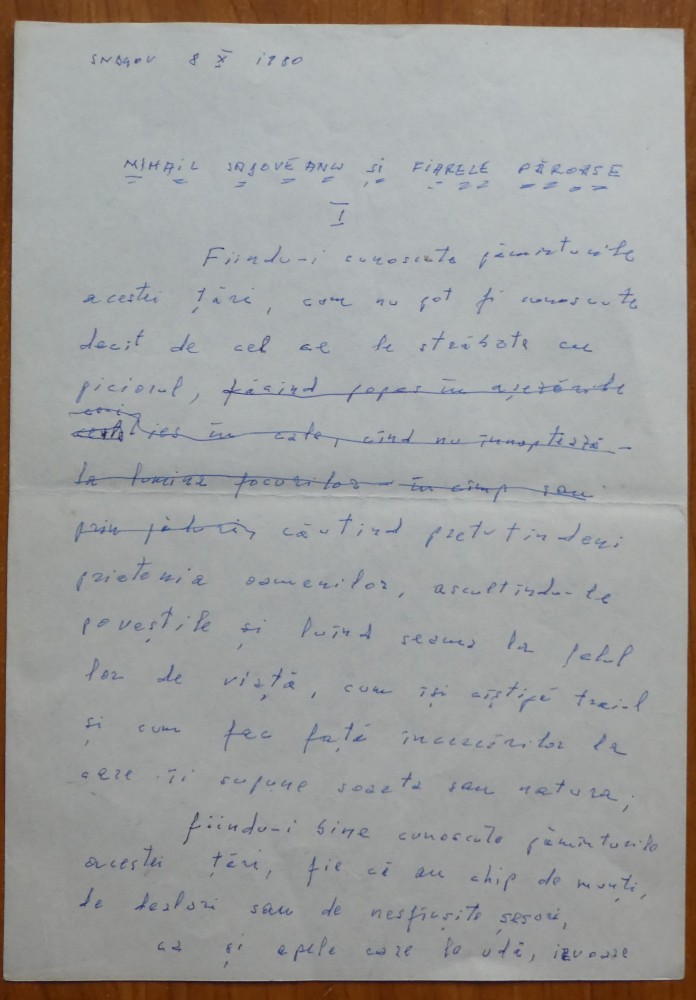 SNAGOV 8 X 1980
MIHAIL SADOVEANU ŞI FIARELE PĂROASE
I
Fiindu-i cunoscute pămînturile
acestei ţări, cum nu pot fi cunoscute
decît de cel ce le străbate cu
piciorul, făcînd popas în aşezările
ce-i
ies în cale, cînd nu înnoptează
la lumina focurilor în cîmp sau
prin păduri, căutînd pretutindeni
prietenia oamenilor, ascultîndu-le
poveştile şi luînd seama la felul
lor de viaţă, cum îşi cîştigă traiul
şi cum fac faţă încercărilor la
care îi supune soarta sau natura;
fiindu-i bine cunoscute pămînturile
acestei ţări, fie că au chip de munţi,
de dealuri sau de nesfîrşite şesuri,
ca şi apele care le udă, izvoare